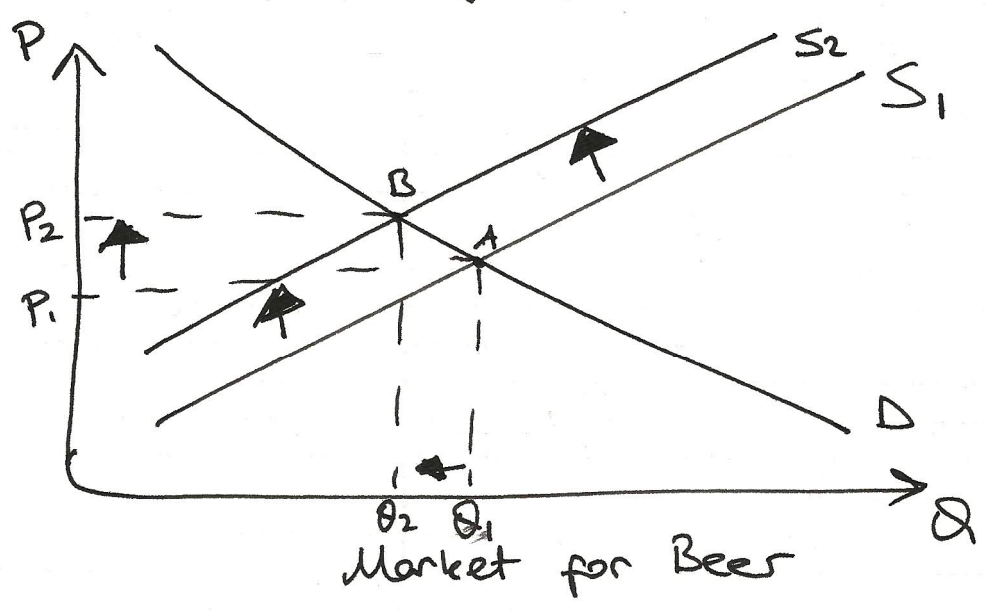 P
S2
S1
B
P2
A
P1
D
Q2 Q1
Q
Market for Beer